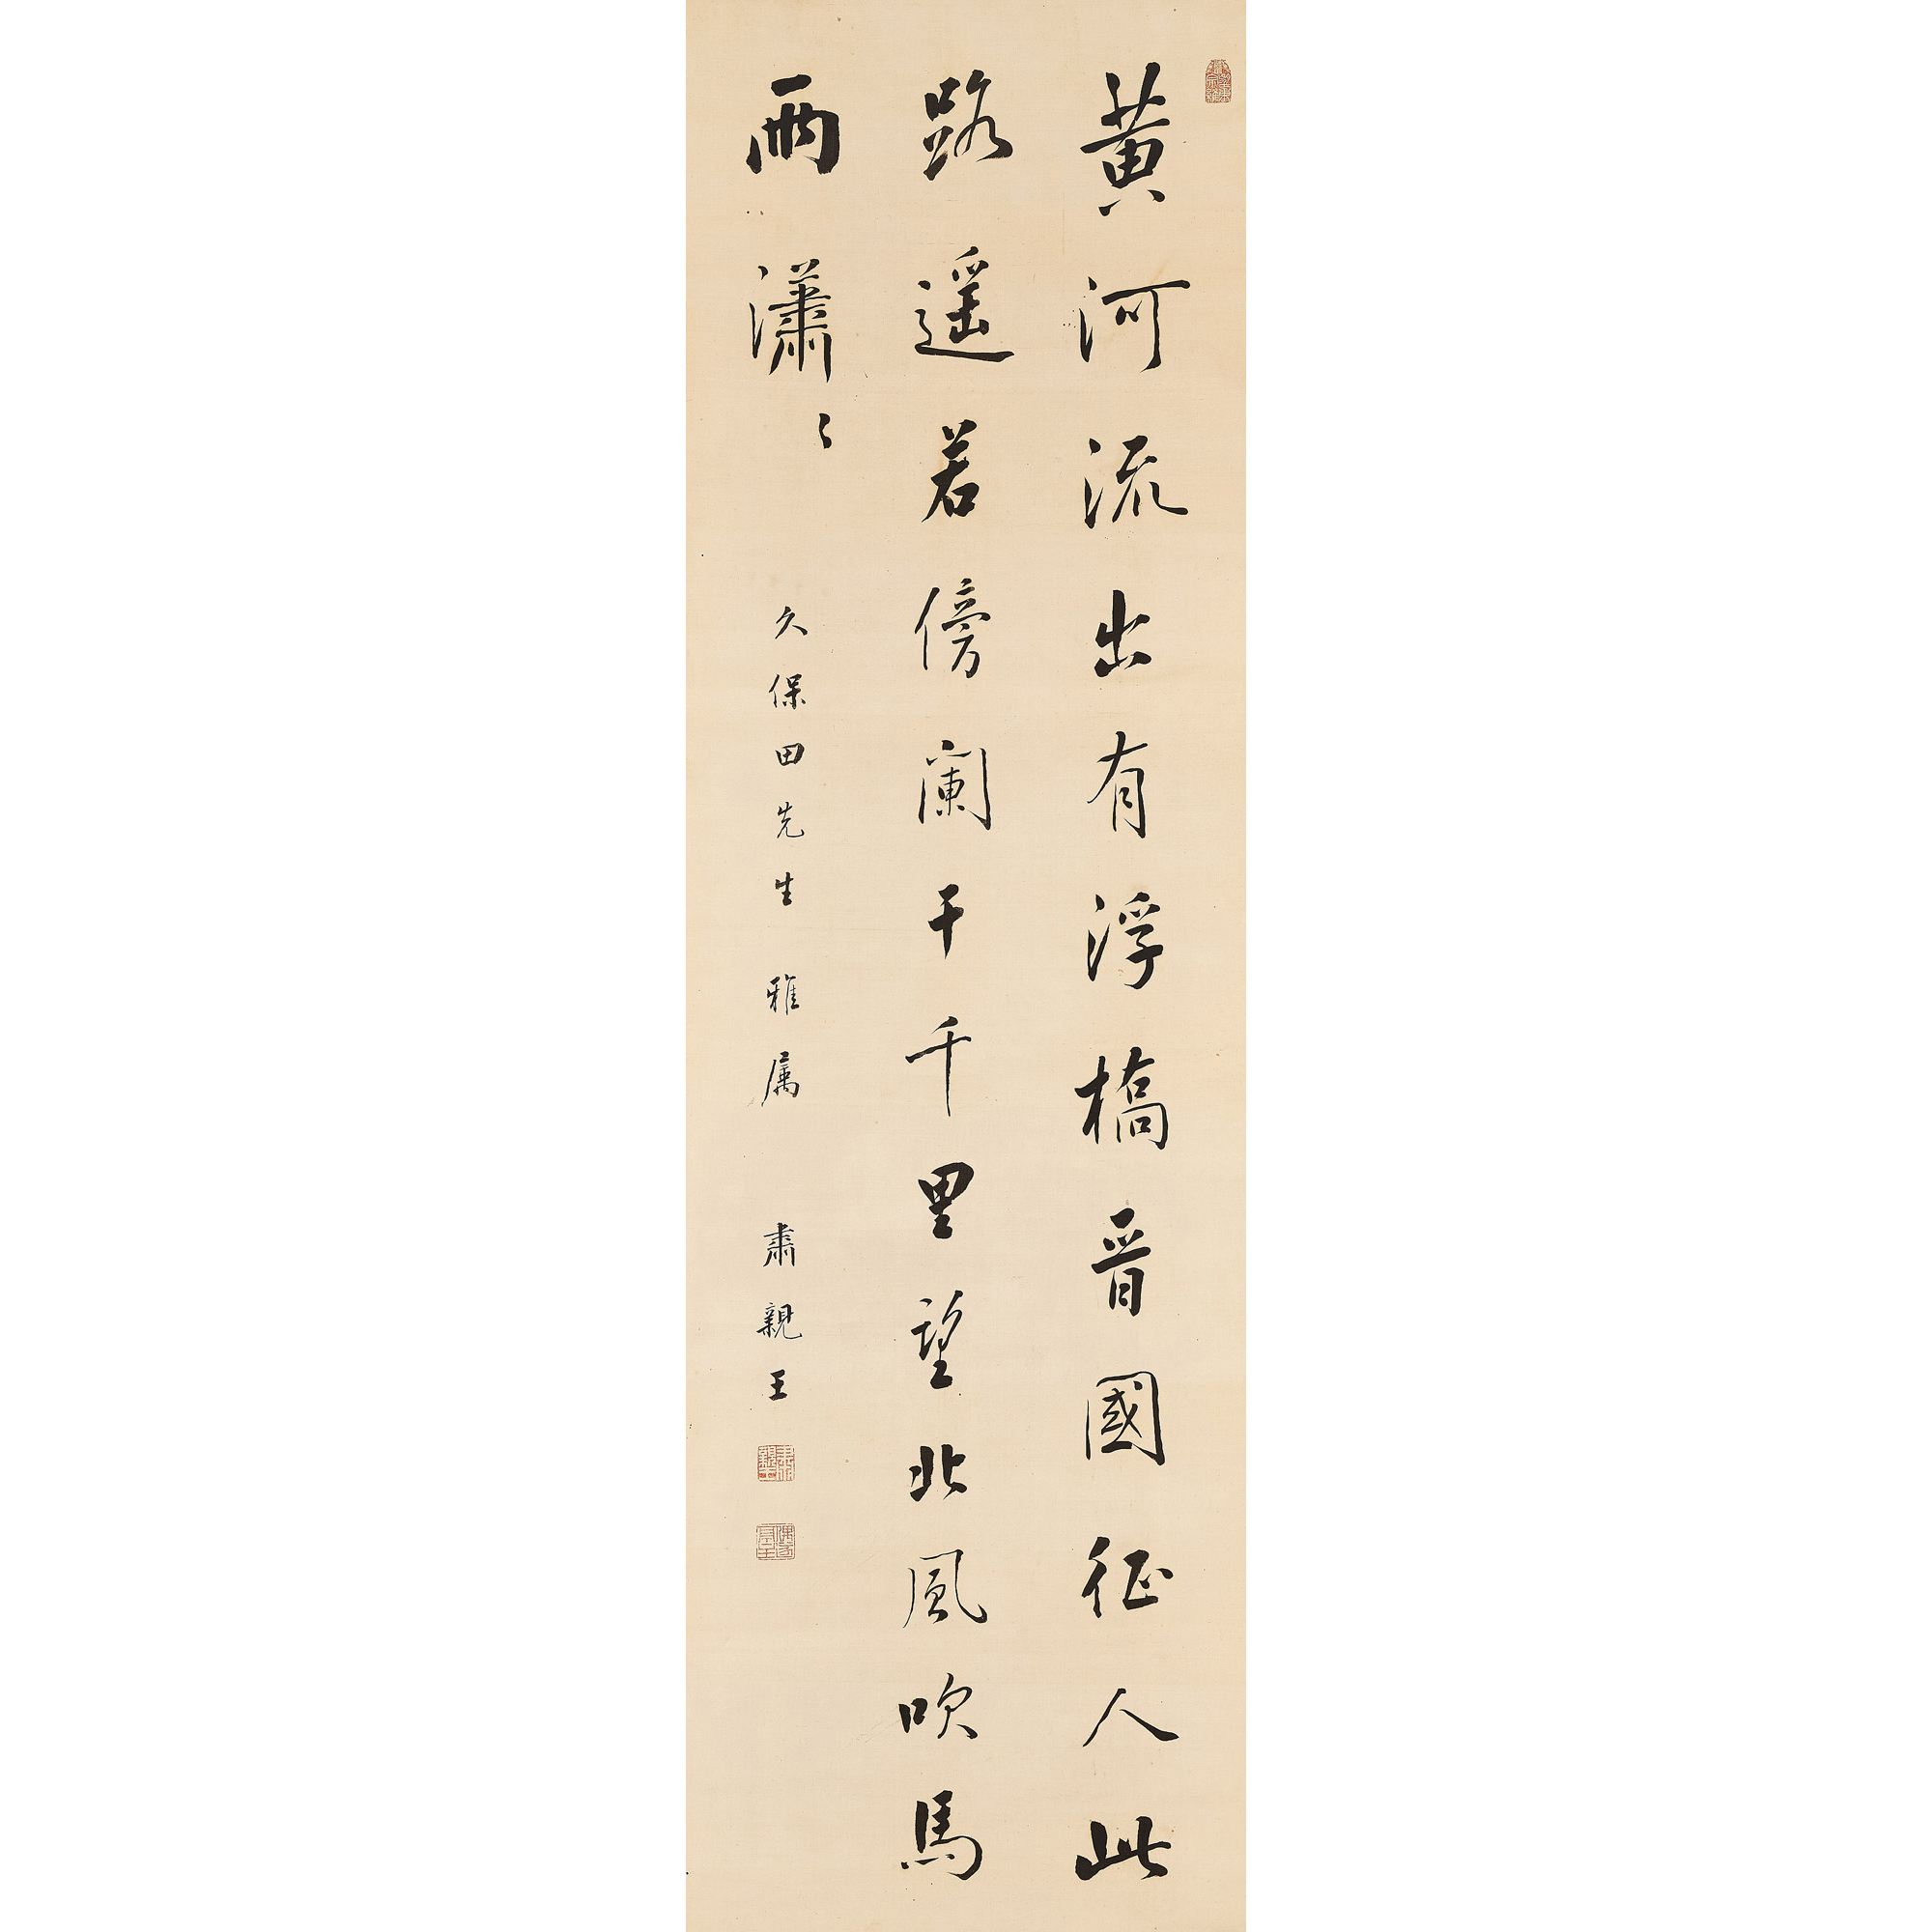 黄河流出有浮橋晉國征人此
路遥若傍闌干千里望北風吹馬
雨瀟々
久保田先生 雅属 肅親王